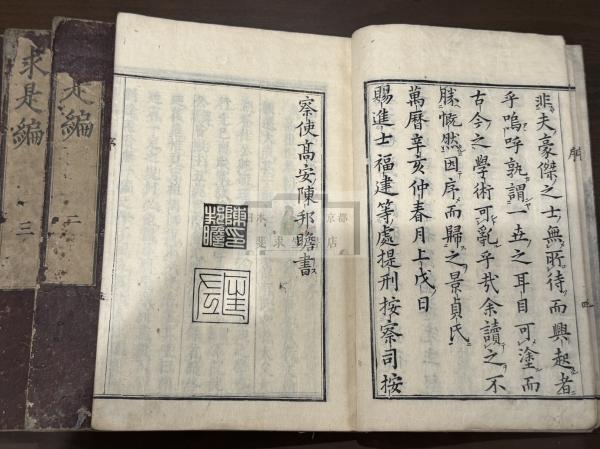 序
非夫豪傑之士無所待而興起者
乎嗚呼孰謂一世之耳目可塗而
古今之學術可亂乎哉余讀之不
勝慨然因序而歸之景貞氏
萬曆辛亥仲春月上戊日
賜進士福建等處提刑按察司按
察使髙安陳邦瞻書
是編 二
求是編 三